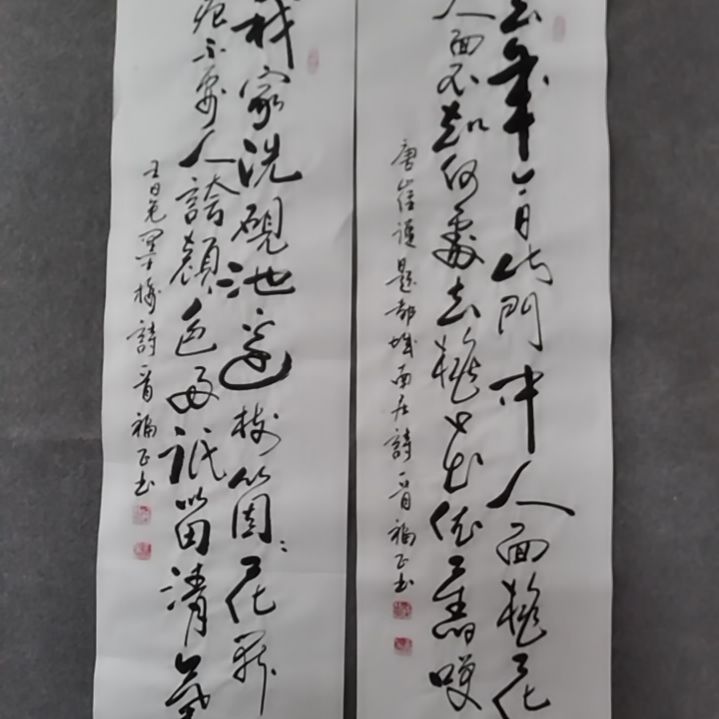 去年今日此門中人面桃花
人面不知何處去桃花依舊咲
唐崔護題都城南庄詩一首福正书
我家洗硯池邊樹箇々花開
痕不要人誇顏色好祇留清氣
王冕墨梅詩一首福正书